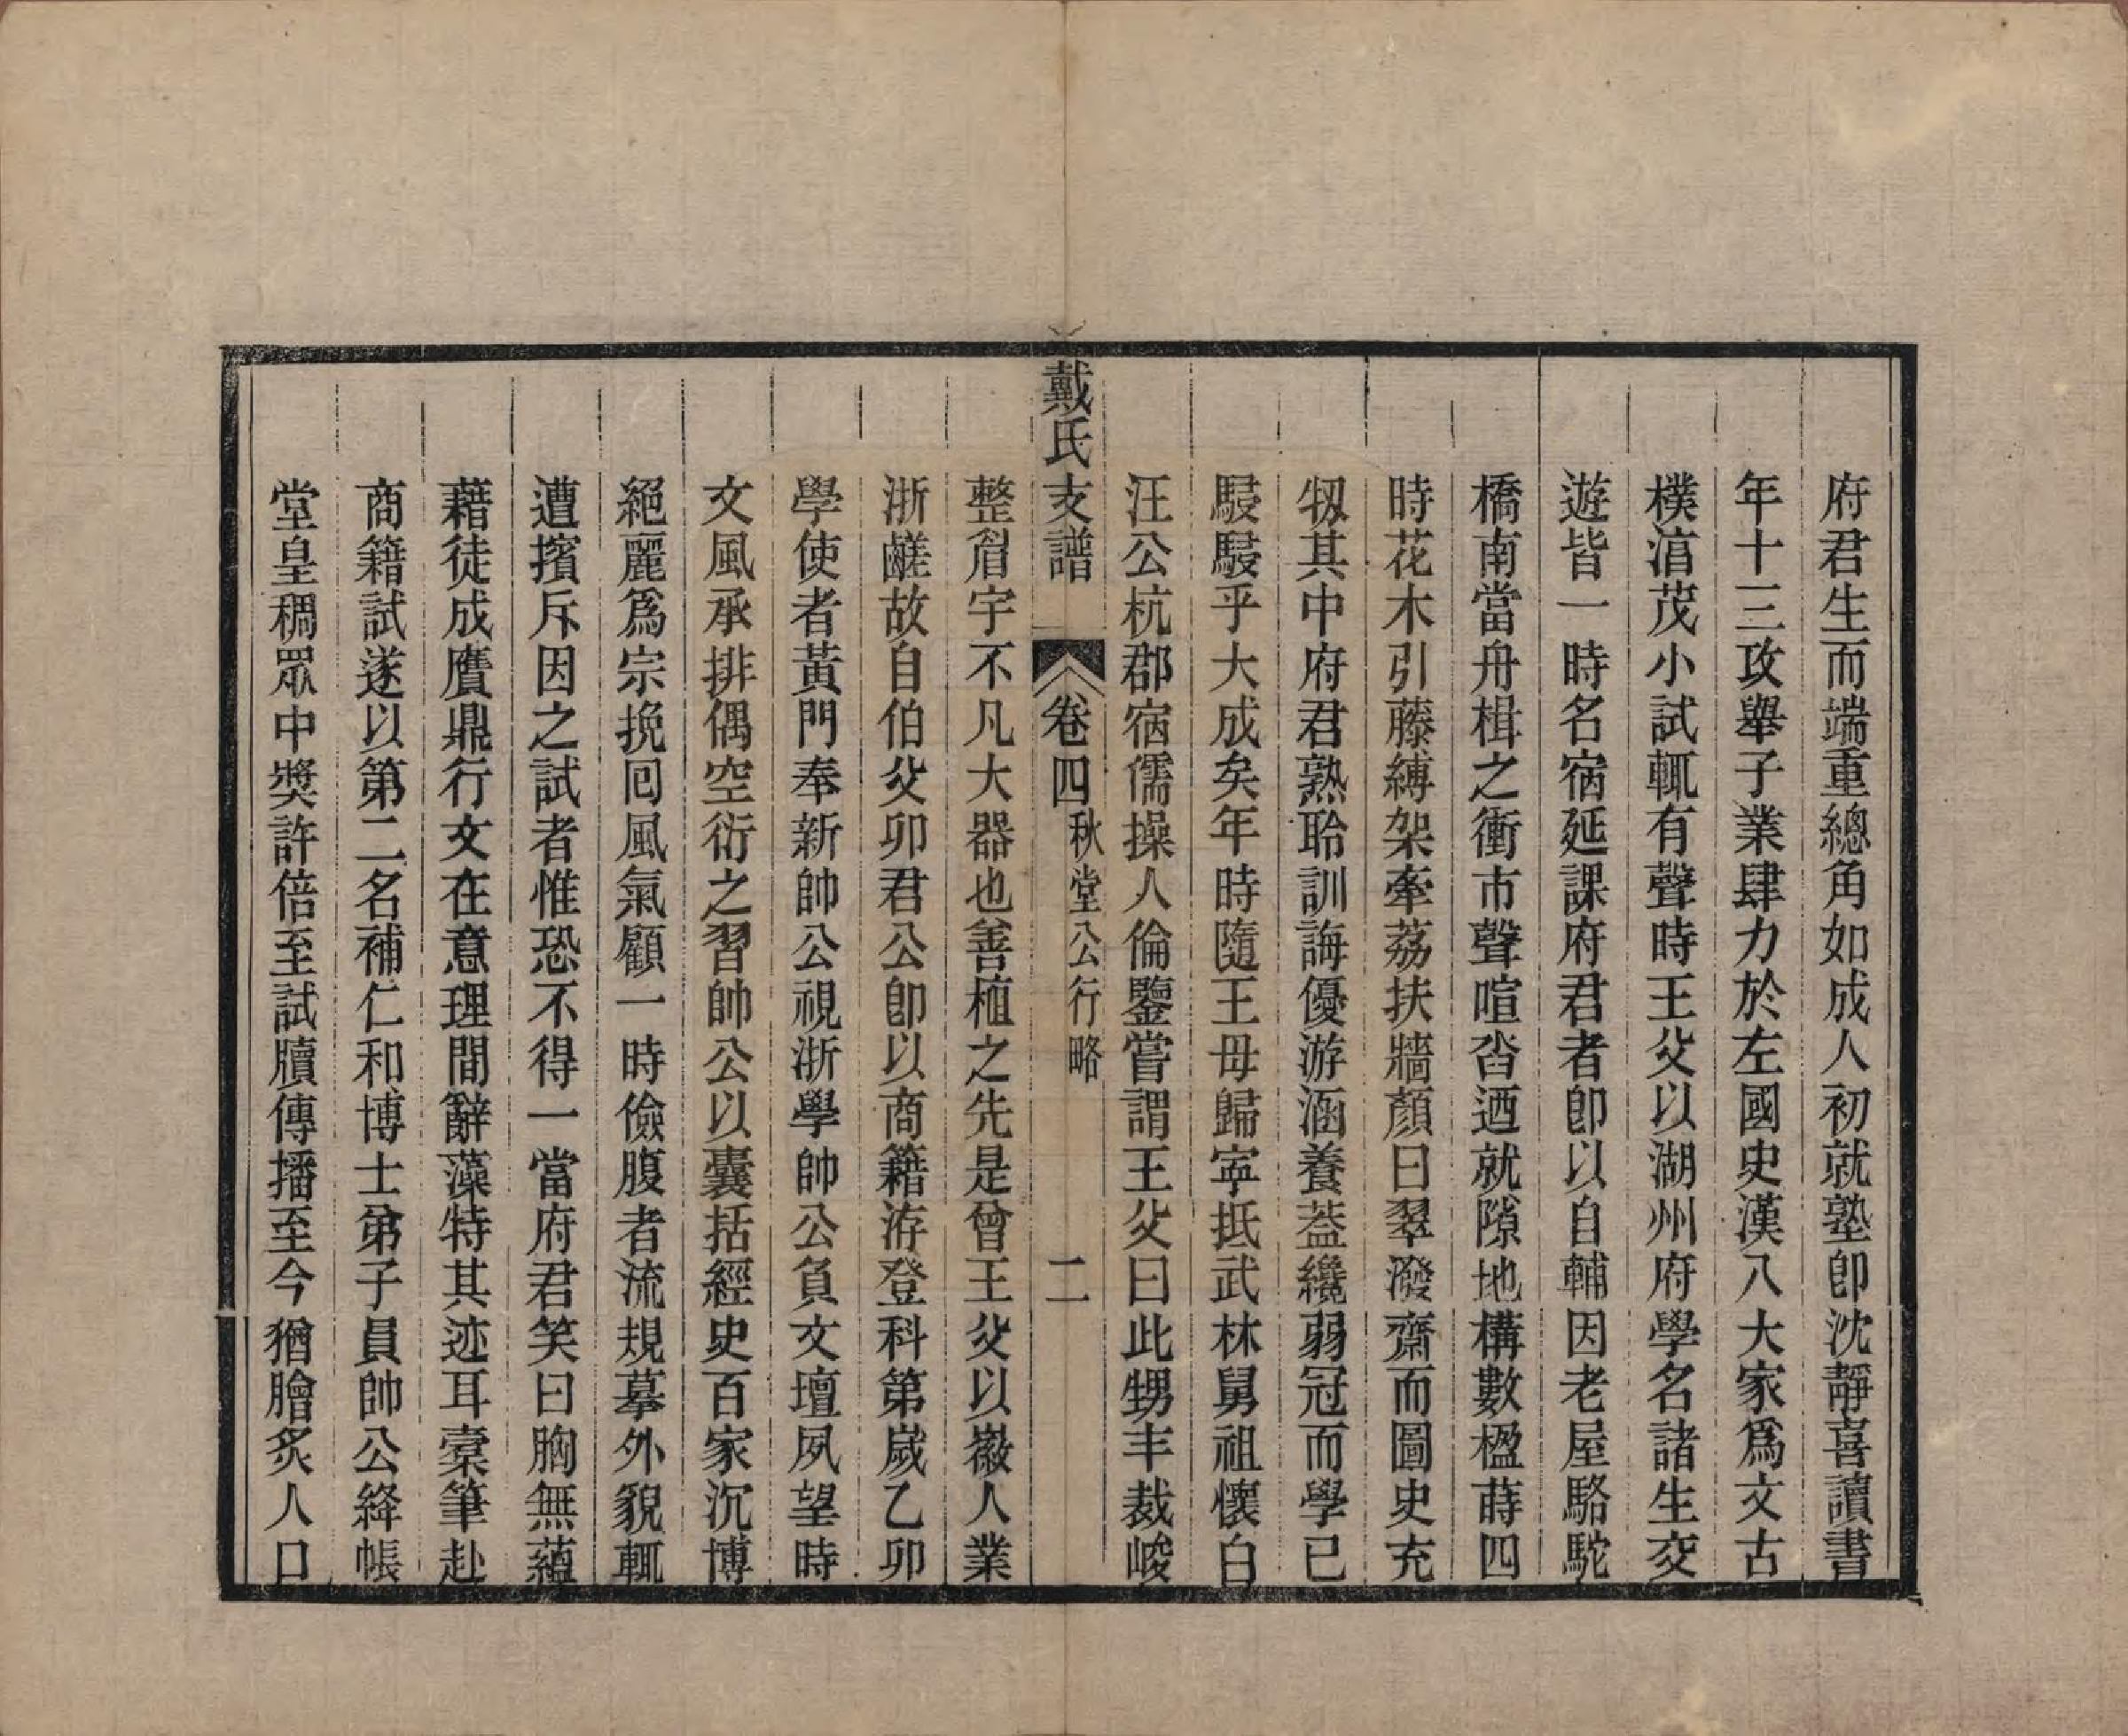 府君生而端重總角如成人初就塾卽沈靜喜讀書
年十三攻舉子業肆力於左國史漢八大家爲文古
樸淯茂小試輒有聲時王父以湖州府學名諸生交
遊皆一時名宿延課府君者卽以自輔因老屋駱駝
橋南當舟楫之衝市聲喧沓迺就隙地構數楹蒔四
時花木引藤縛架牽荔扶牆顏曰翠潑齋而圖史充
牣其中府君熟聆訓誨優游涵養葢纔弱冠而學已
駸駸乎大成矣年時隨王母歸寜抵武林舅祖懷白
汪公杭郡宿儒操人倫鑒嘗謂王父曰此甥丰裁峻
戴氏支譜 卷四 秋堂公行略 二
整眉宇不凡大器也善植之先是曾王父以徽人業
浙鹺故自伯父卯君公卽以商籍洊登科第歲乙卯
學使者黃門奉新帥公視浙學帥公負文壇夙望時
文風承排偶空衍之習帥公以囊括經史百家沉博
絕麗爲宗挽囘風氣顧一時儉腹者流規摹外貌輒
遭擯斥因之試者惟恐不得一當府君笑曰胸無蘊
藉徒成贗鼎行文在意理間辭藻特其迹耳槖筆赴
商籍試遂以第二名補仁和博士弟子員帥公絳帳
堂皇稠眾中奬許倍至試牘傳播至今猶膾炙人口